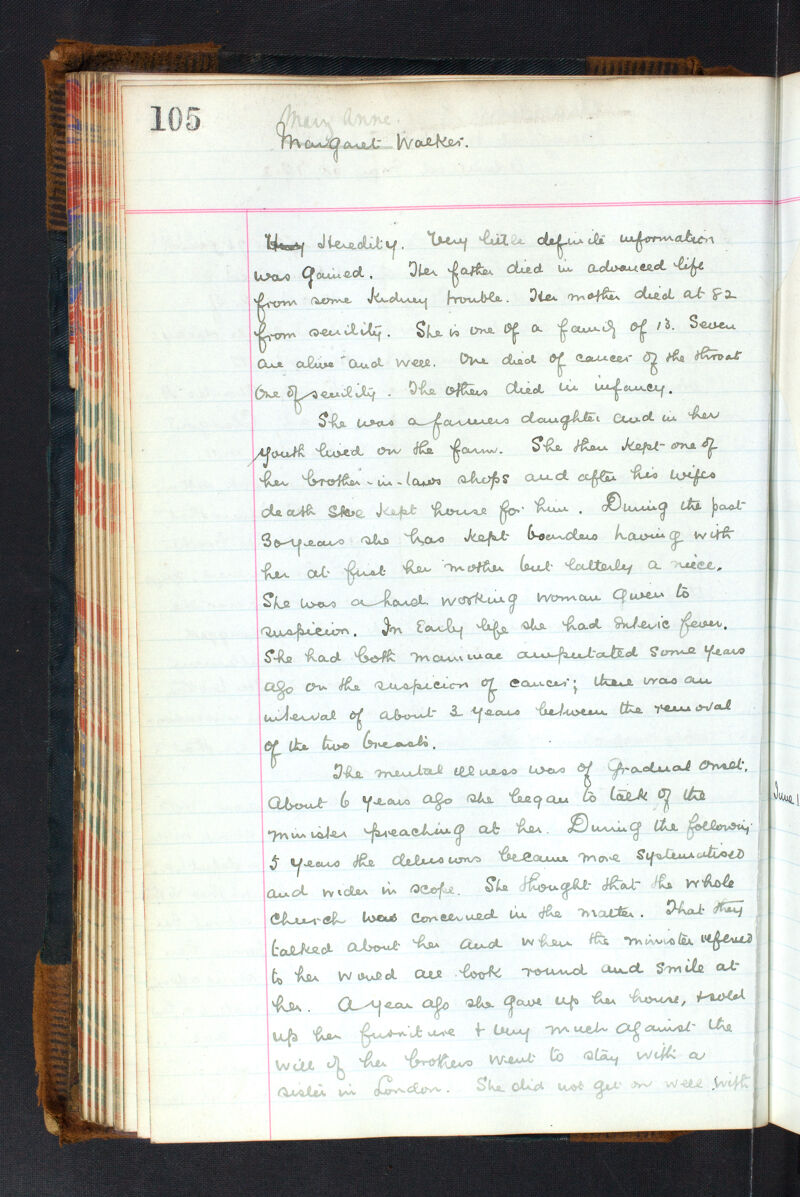 105
Mary Anne.
Margaret Walker.
Heredity. Very little definite information
was gained. Her father died in advanced life
from some kidney trouble. Her mother died at 82
from senility. She is one of a family of 13. Seven
are alive and well. One died of cancer of the throat
One of senility. The others died in infancy.
She was a farmers daughter and in her
youth lived on the farm. She then kept one of
her brother-in-laws shops and after his wifes
death she kept house for him. During the past
30 years she has kept boarders having with
her at first her mother but latterly a niece.
She was a hard working woman given to
suspicion. In Early life she had Enteric fever.
She had both mammae amputated some years
ago on the suspicion of cancer; there was an
interval of about 3 years between the removal
of the two breasts.
The mental illness was of gradual onset.
About 6 years ago she began to talk of the
minister preaching at her. During the following
5 years the delusions became more systematised
and wider in scope. She thought that the whole
church was concerned in the matter. That they
talked about her and when the minister referred
to her would all look round and smile at
her. A year ago she gave up her house, & sold
up her furniture & very much against the
will of her brothers went to stay with a
sister in London. She did not get on well with
June 1